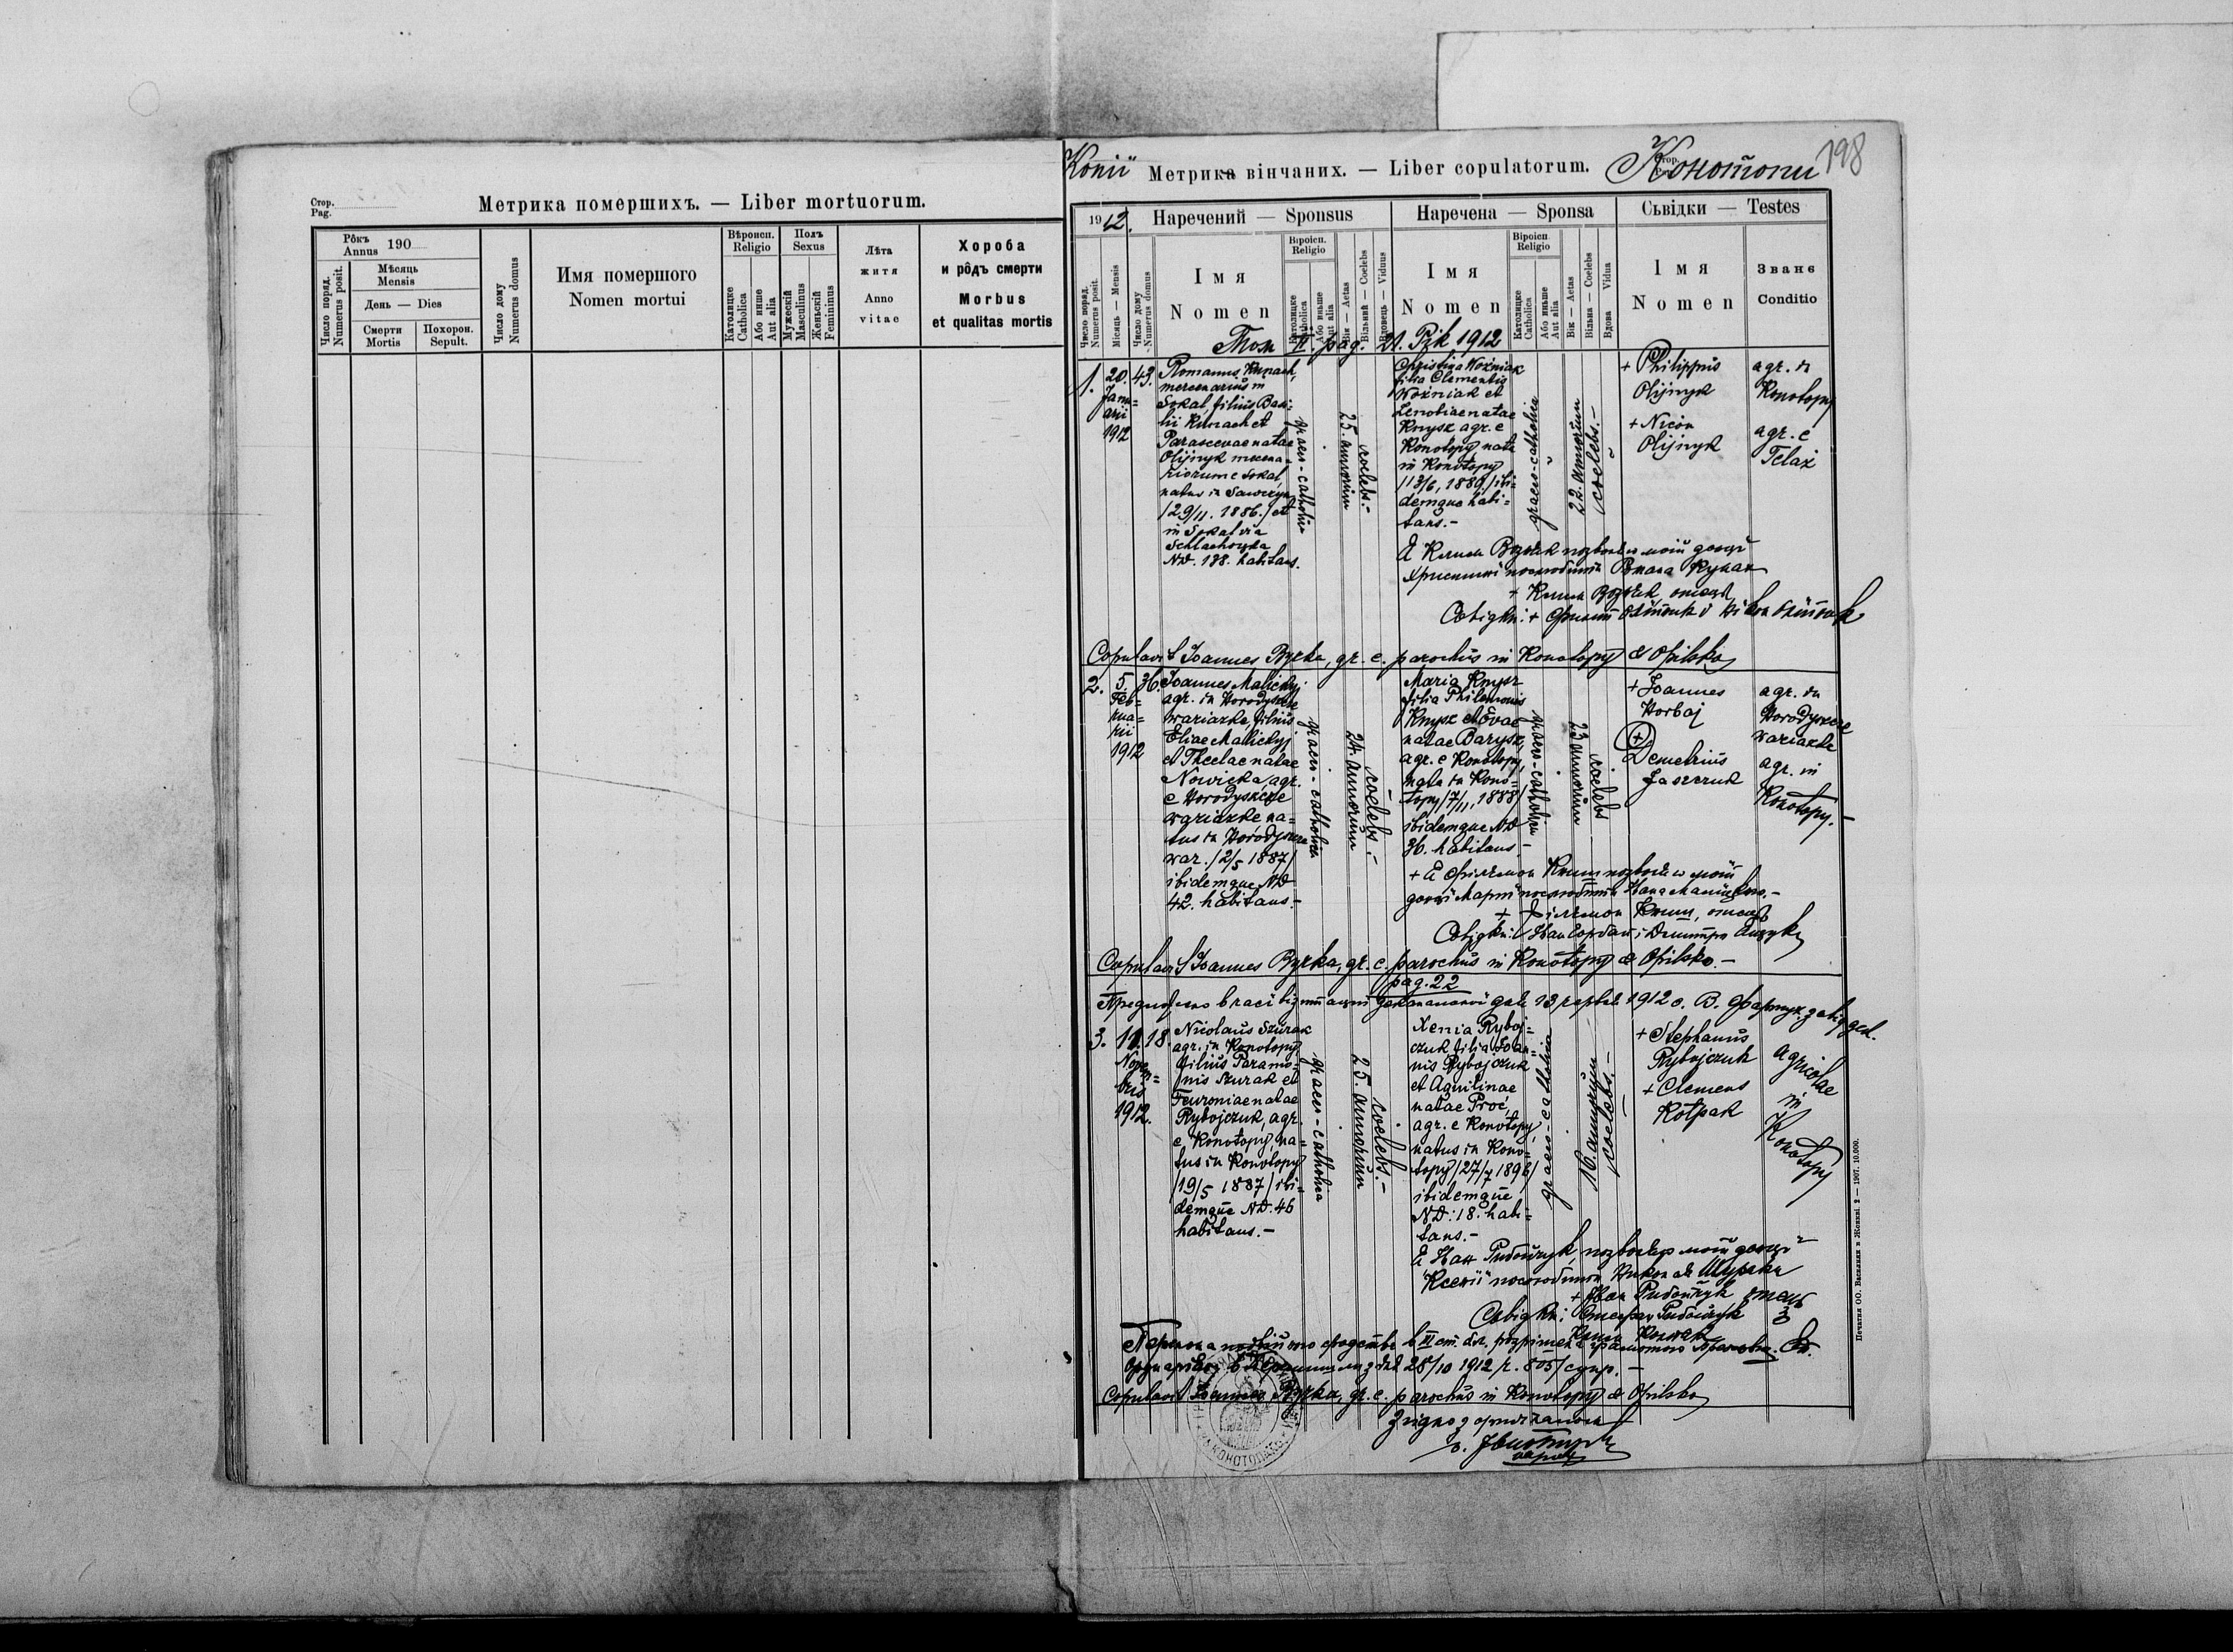 Стор.
Pag.
Метрика помершихъ. — Liber mortuorum.
Рôкъ
Annus 190
Число поряд.
Numerus posit.
Мѣсяць
Mensis
День — Dies
Смерти
Mortis
Похорон.
Sepult.
Число дому
Numerus domus
Имя помершого
Nomen mortui
Вѣроисп.
Religio
Католицке
Catholica
Або инше
Aut alia
Полъ
Sexus
Мужескій
Masculinus
Женьскій
Femininus
Лѣта
житя
Anno
vitae
Хороба
и рôдъ смерти
Morbus
et qualitas mortis
Копії Метрика вінчаних. — Liber copulatorum. Конотопи 198
1912. Наречений — Sponsus
Наречена — Sponsa
Сьвідки — Testes
Число поряд.
Numerus posit.
Місяць — Mensis
Число дому
Numerus domus
Імя
Nomen
Віроісп.
Religio
Католицке
Catholica
Або иньше
Aut alia
Вік — Aetas
Вільний — Coelebs
Вдовець — Viduus
Імя
Nomen
Віроісп.
Religio
Католицке
Catholica
Або иньше
Aut alia
Вік — Aetas
Вільна — Coelebs
Вдова Vidua
Імя
Nomen
Званє
Conditio
Том II. pag. 21. Рік 1912
1.
20.
Janu=
arii
1912
43.
Romanus Kunach,
mercenarius in
Sokal, filius Basi=
lii Kunach et
Parascevae natae
Olijnyk mercena=
riorum e Sokal,
natus in Sawczyn
/29/11. 1886./ et
in Sokal via
Schlachecka
ND. 188. habitans.
graeco-catholica
25. annorum
coelebs.-
Christina Woźniak
filia Clementis
Woźniak et
Zenobiae natae
Knysz agr. e
Konotopy nata
in Konotopy
/13/6, 1889./ ibi=
demque habi=
tans.-
graeco-catholica
22. annorum
coelebs.-
+ Philippus
Olijnyk
+ Nicon
Olijnyk
agr. in
Konotopy
agr. e
Telaż
Я Клим Возняк позволяю моїй доньці
Христинї посьлюбити Романа Кунах
+ Клим Возняк, отець
Свідки: + Филип Олійник і Нїкон Олійник
Copulavit Joannes Byrka, gr. c. parochus in Konotopy & Opilsko
2.
5.
Feb=
rua=
rii
1912
36.
Joannes Malickyj
agr. in Horodyszcze
wariazke filius
Eliae Malickyj
et Theclae natae
Nowicka, agr.
e Horodyszcze
wariazke na=
tus in Horodyszcze
war. /2/5 1887/
ibidemque ND
42. habitans.-
graeco-catholica
24. annorum
coelebs.-
Maria Knysz
filia Philemonis
Knysz et Evae
natae Barysz,
agr. e Konotopy,
nata in Kono=
topy /7/11, 1888/
ibidemque ND
36. habitans.-
graeco-catholica
23 annorum
coelebs
+ Joannes
Horbaj
(+)
Demetrius
Jaszczuk
agr. in
Horodyszcze
wariazke
agr. in
Konotopy.-
+ Я Филємон Книш позволяю моїй
доньці Марії посьлюбити Івана Маліцкого.-
+ Филємон Книш, отець
Свідки: Іван Горбай і Дмитро Ящук
Copulavit Joannes Byrka, gr. c. parochus in Konotopy & Opilsko.-
pag. 22
Предложено в часї візитациї деканальної дня 13 1912 о. В.
3.
18.
Novem=
bris
1912.
Nicolaus Szurak
agr. in Konotopy
filius Paramo=
nis Szurak et
Fevroniae natae
Rybojczuk, agr.
e Konotopy, na=
tus in Konotopy
/19/5 1887/ ibi=
demque ND. 46
habitans.-
graeco-catholica
25. annorum
coelebs.-
Xenia Ryboj=
czuk filia Joan=
nis Rybojczuk
et Aquilinae
natae Proć,
agr. e Konotopy,
natus in Kono=
topy /27/7 1896/
ibidemque
ND: 18. habi=
tans.-
graeco-catholica
16. annorum
coelebs.-
+ Stephanus
Rybojczuk
+ Clemens
Kołpak
agricolae
in
Konotopy
Я Іван Рибойчук, позволяю моїй доньці
Ксенії посьлюбити Николая Шурака
+ Іван Рибойчук отець
Свідки: Стефан Рибойчук
Клим Колпак
28/10 1912 ч. 805/
Copulavit Joannes Byrka, gr. c. parochus in Konotopy & Opilsko
Згідно з оригіналом
Печатня ОО. Василиян в Жовкві. 2 — 1907. 10.000.